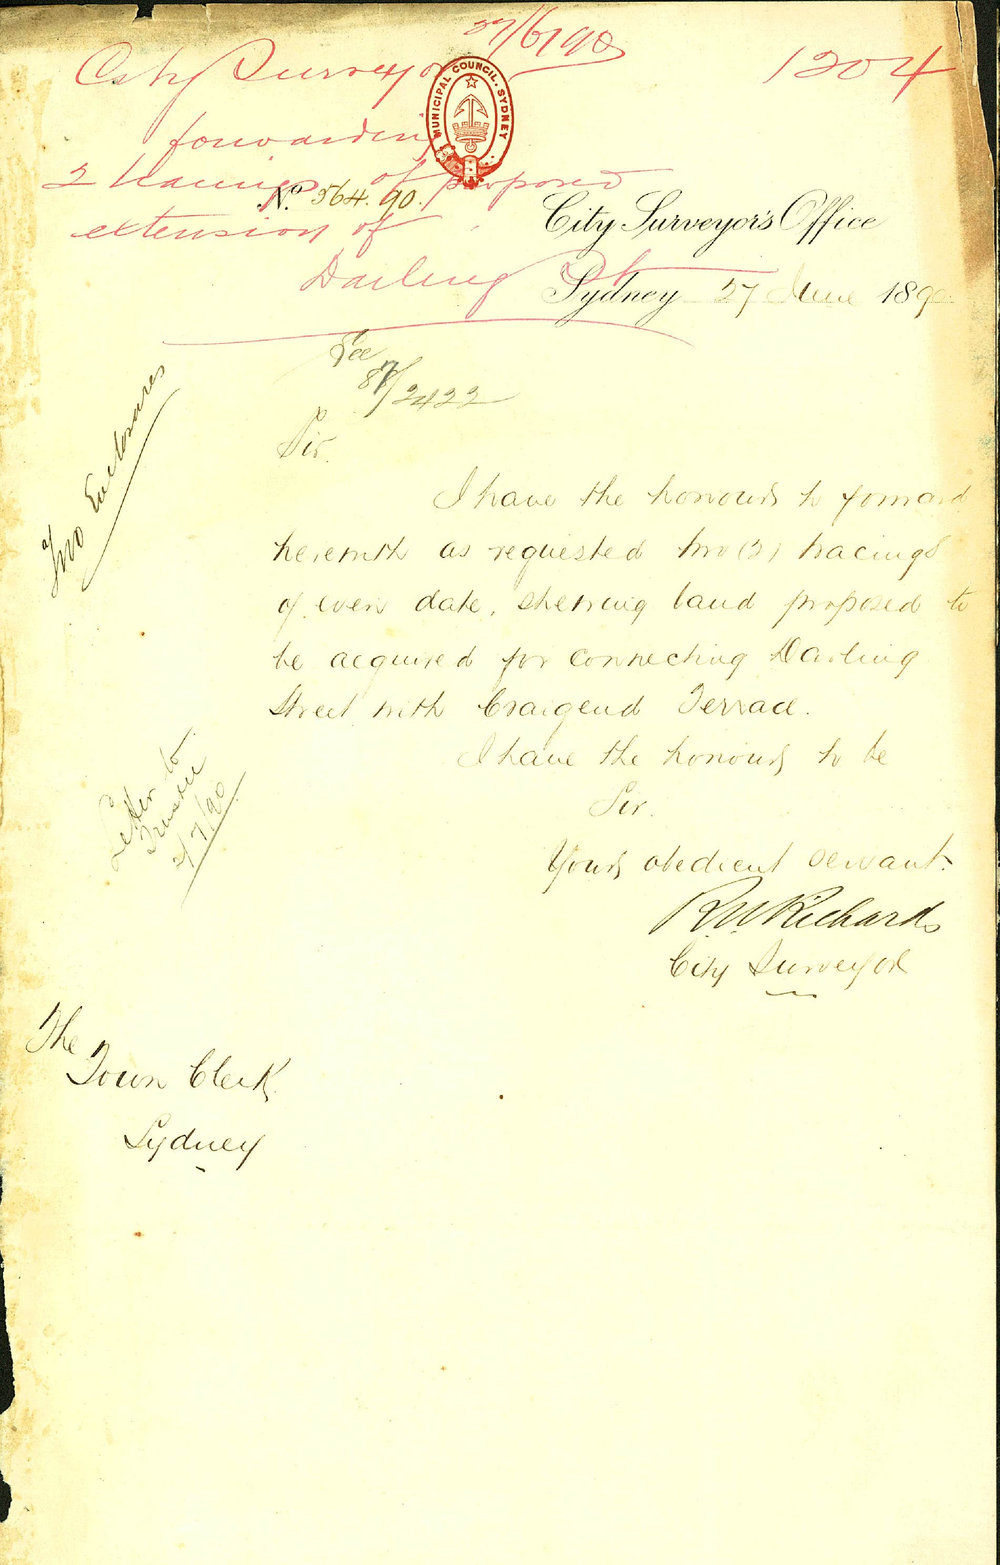 27/6/90
City Surveyor
1204
MUNICIPAL COUNCIL. SYDNEY
forwarding
2 tracings of proposed
No. 564.90.
extension of
City Surveyor's Office
Darling St
Sydney 27 June 1890
See
87/2422
Two Enclosures
Sir.
I have the honour to forward
herewith as requested two (2) tracings
of even date, shewing land proposed to
be acquired for connecting Darling
Street with Craigend Terrace.
I have the honour to be
Sir.
Letter to
2/7/90
Your obedient servant.
R W Richards
City Surveyor
The
Town Clerk
Sydney